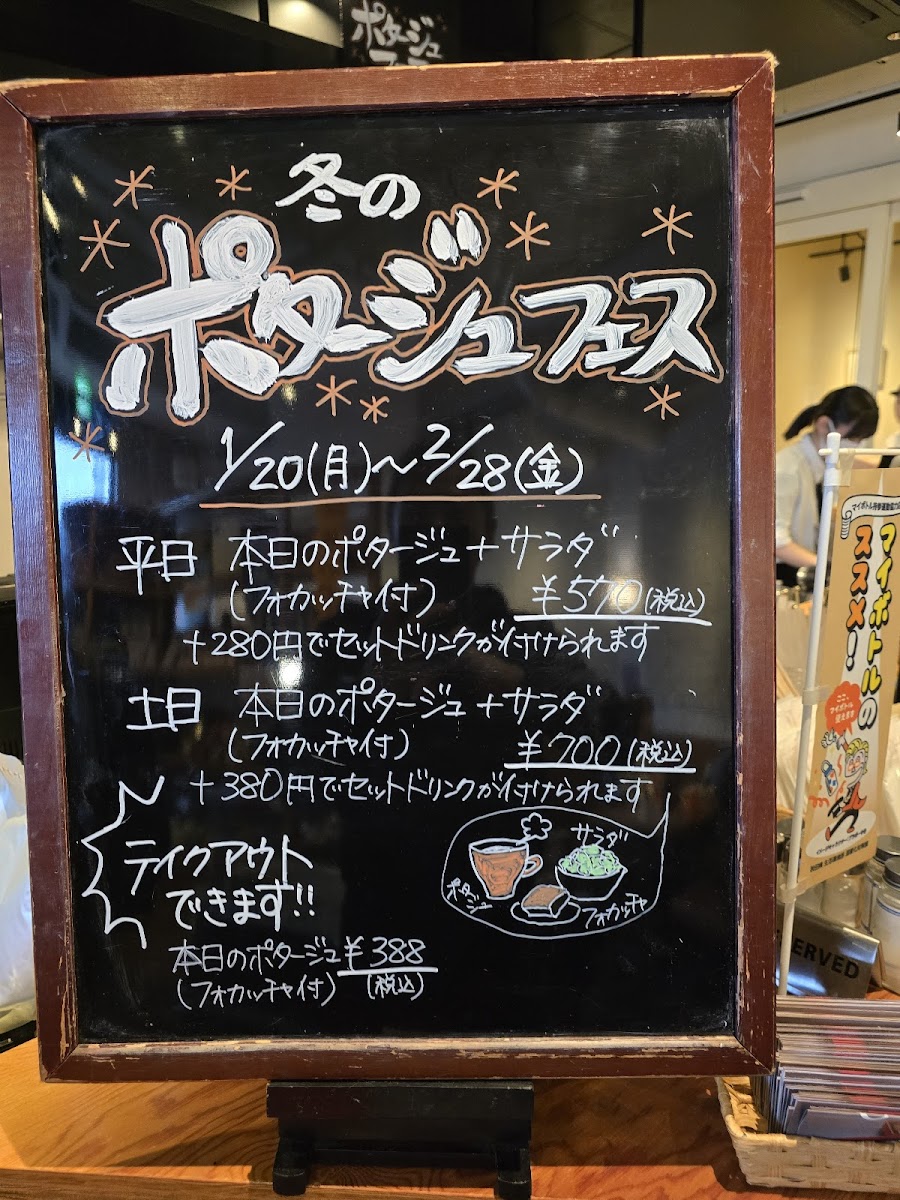 ポタージュ
冬の
ポタージュフェス
1/20(月)～2/28(金)
平日 本日のポタージュ+サラダ
(フォカッチャ付) ¥570(税込)
+280円でセットドリンクが付けられます
土日 本日のポタージュ+サラダ
(フォカッチャ付) ¥700(税込)
+380円でセットドリンクが付けられます
テイクアウト
できます!!
本日のポタージュ¥388
(フォカッチャ付) (税込)
サラダ
ポタージュ
フォカッチャ
マイボトルの
ススメ!
ERVED